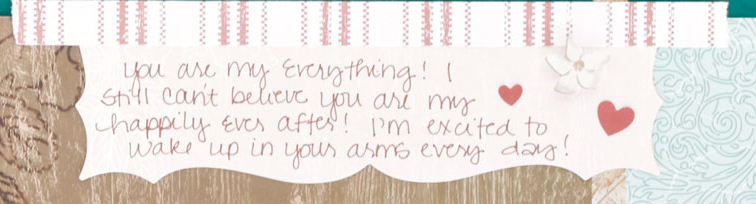 you are my everything! I
still can't believe you are my
happily ever after! I'm excited to
wake up in your arms every day!